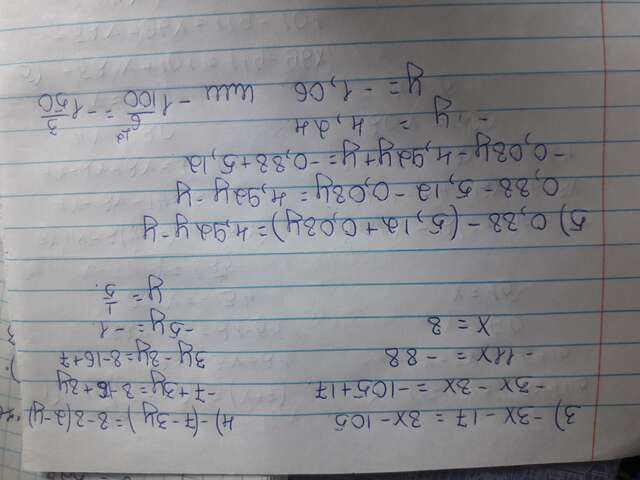 3) -3x - 17 = 8x - 105
-3x - 8x = -105 + 17
-11x = -88
x = 8
4) -(7-3y) = 8-8(2-y)
-7+3y = 8-16+8y
3y - 8y = 8-16+7
-5y = -1
y = 1/5.
5) 0,88 - (5,12 + 0,08y) = 4,92y - y
0,88 - 5,12 - 0,08y = 4,92y - y
-0,08y - 4,92y + y = -0,88 + 5,12
-4y = 4,24
y = -1,06 или -1 6/100 = -1 3/50